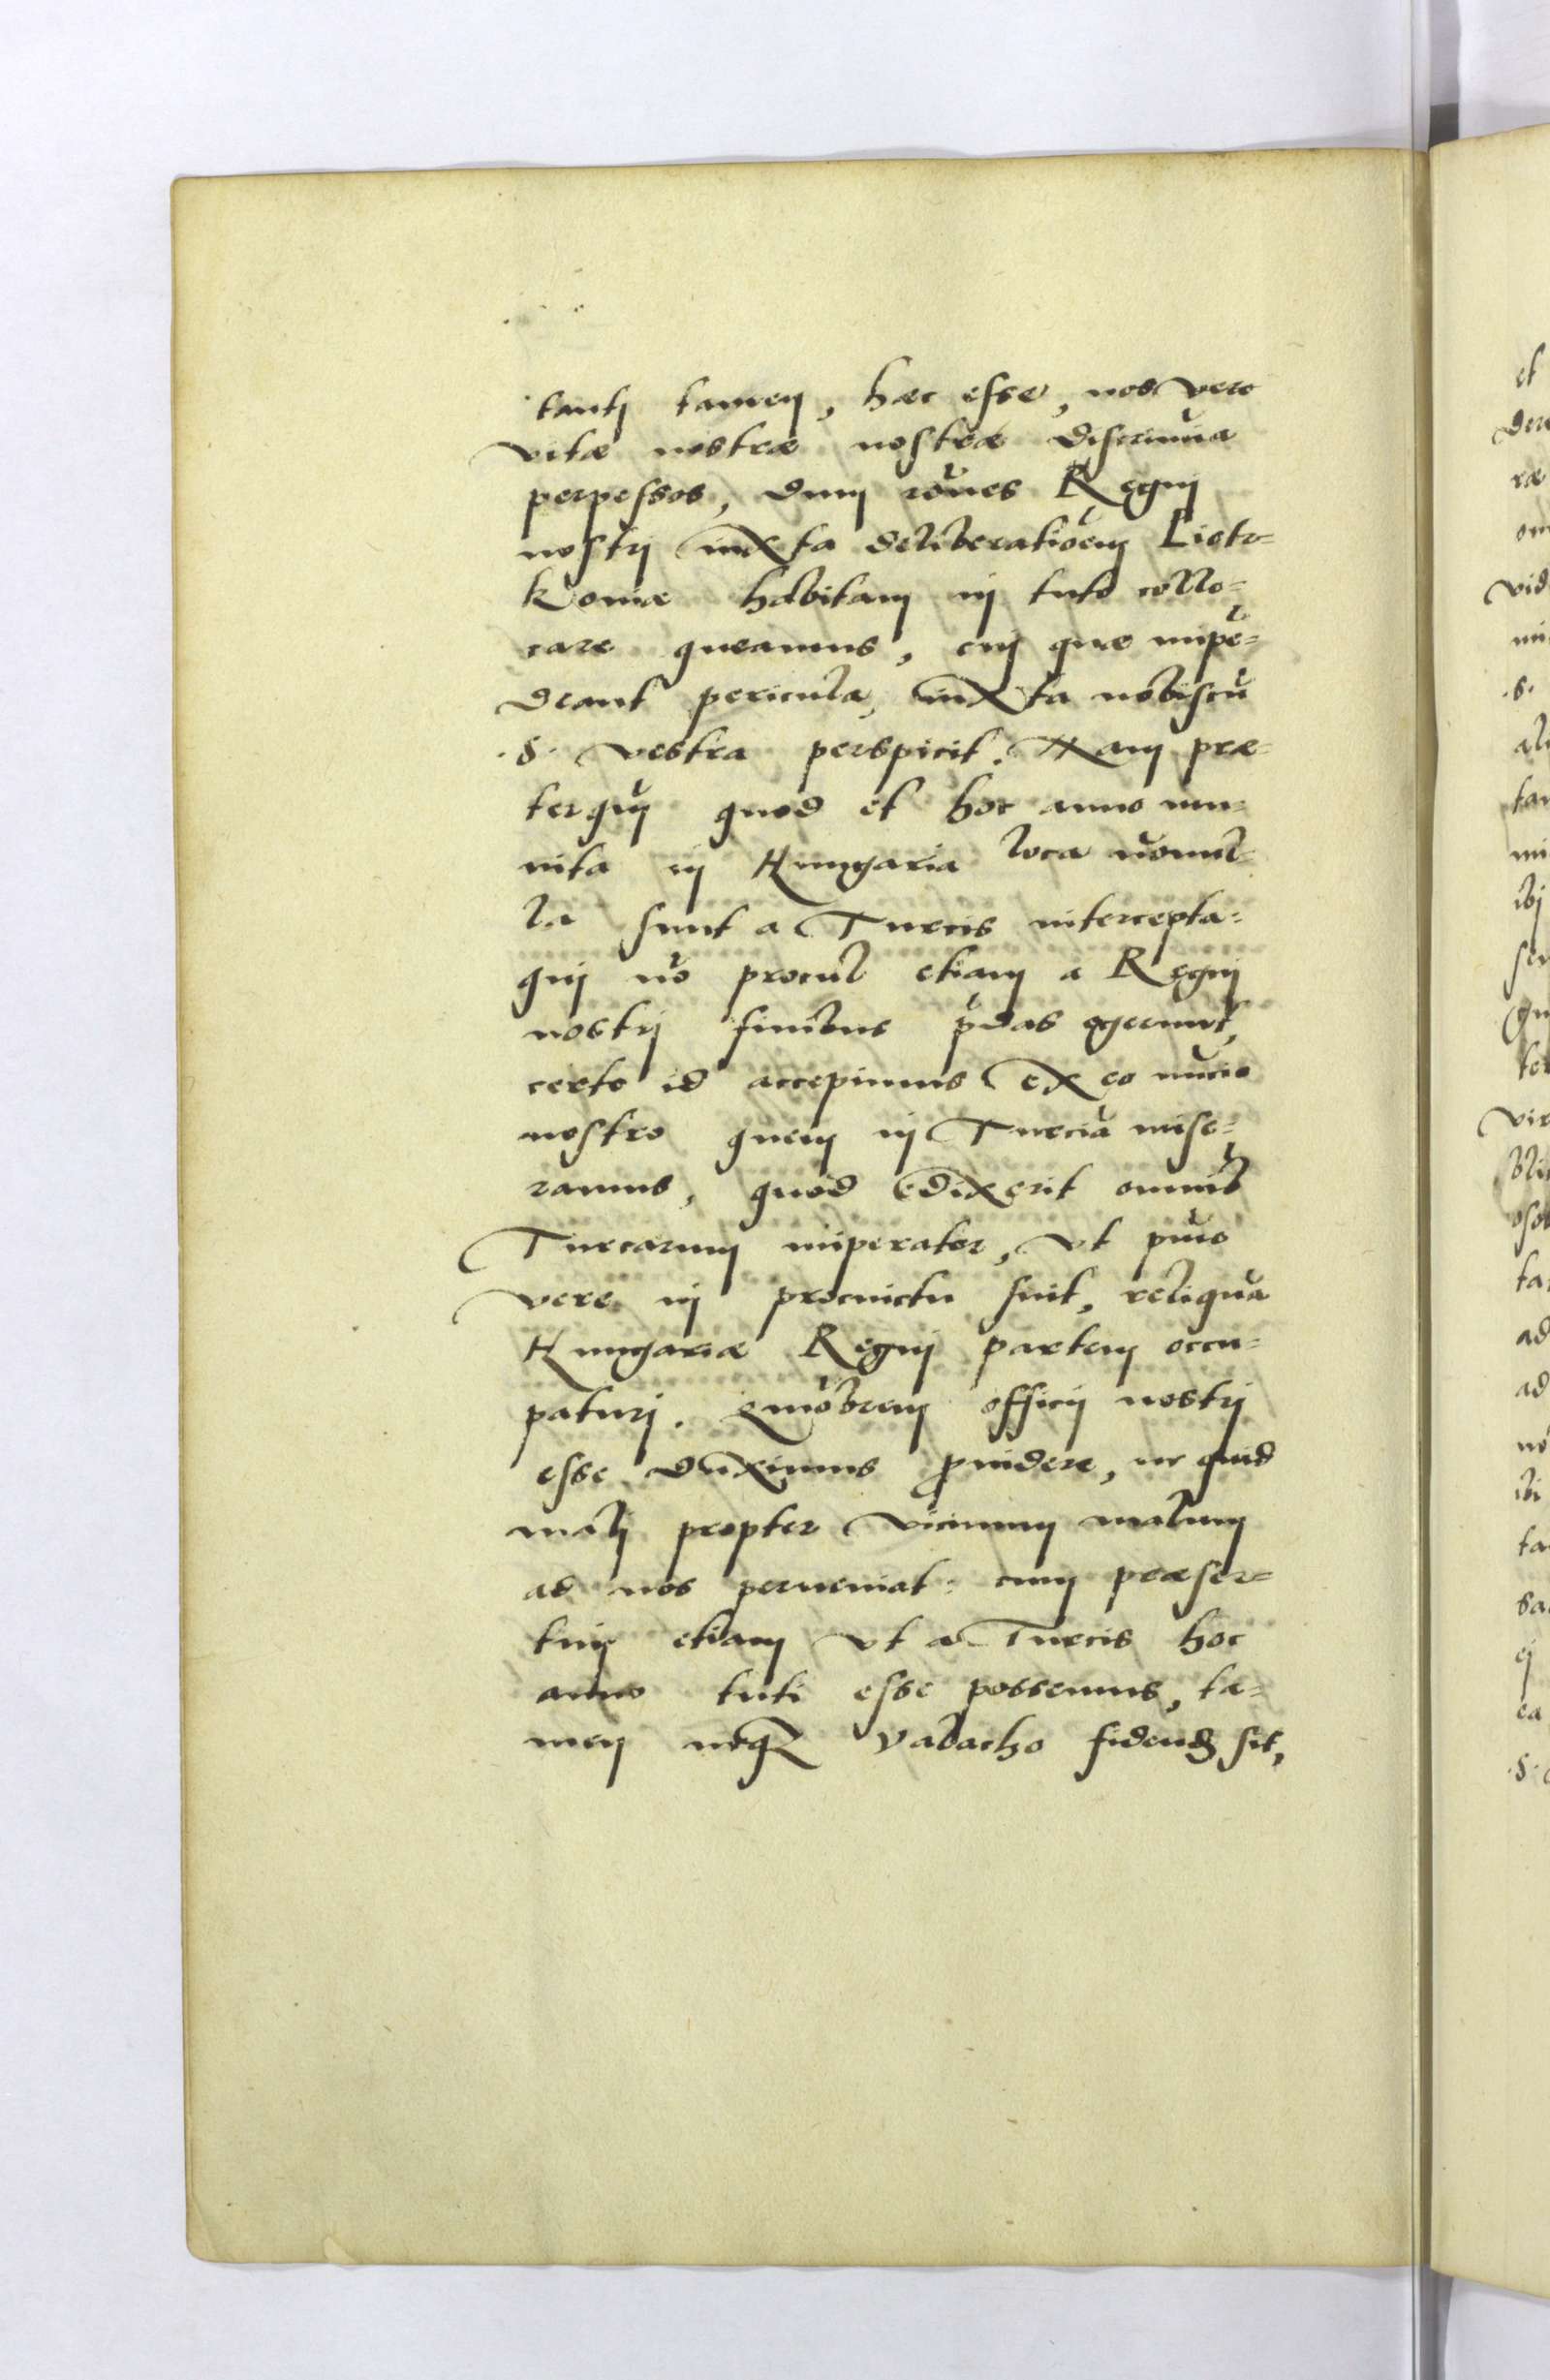 tantj tamen, hæc esse, nos vero
vitæ nostræ nostræ discrimina
perpessos, dum rões Regnj
nostrj iuxta deliberatiõem Piotr-
koviæ habitam in tuto collo-
care queamus, cuj quæ impē-
deant pericula, iuxta nobiscū
.S. vestra perspicit. Nam præ-
terq̃ quod et hoc anno mu-
nita in Hungaria loca nõnul-
la sunt a Turcis intercepta-
qui nõ procul etiam a Regnj
nostrj finibus p̃das egerunt,
certo id accepimus ex eo nũcio
nostro quem in Turciã mise-
ramus, quod edixerit omnib
Turcarum imperator, vt primo
vere in procinctu sint, reliquã
Hungariæ Regnj partem occu-
paturj. Quãobrem officij nostrj
esse duximus prouidere, ne quid
malj propter vicinum malum
ad nos perueniat: cum præser-
tim etiam vt a Turcis hoc
anno tuti esse possemus, ta-
men neq₃ Valacho fidend sit,
et
vid
.s.
ad
ad